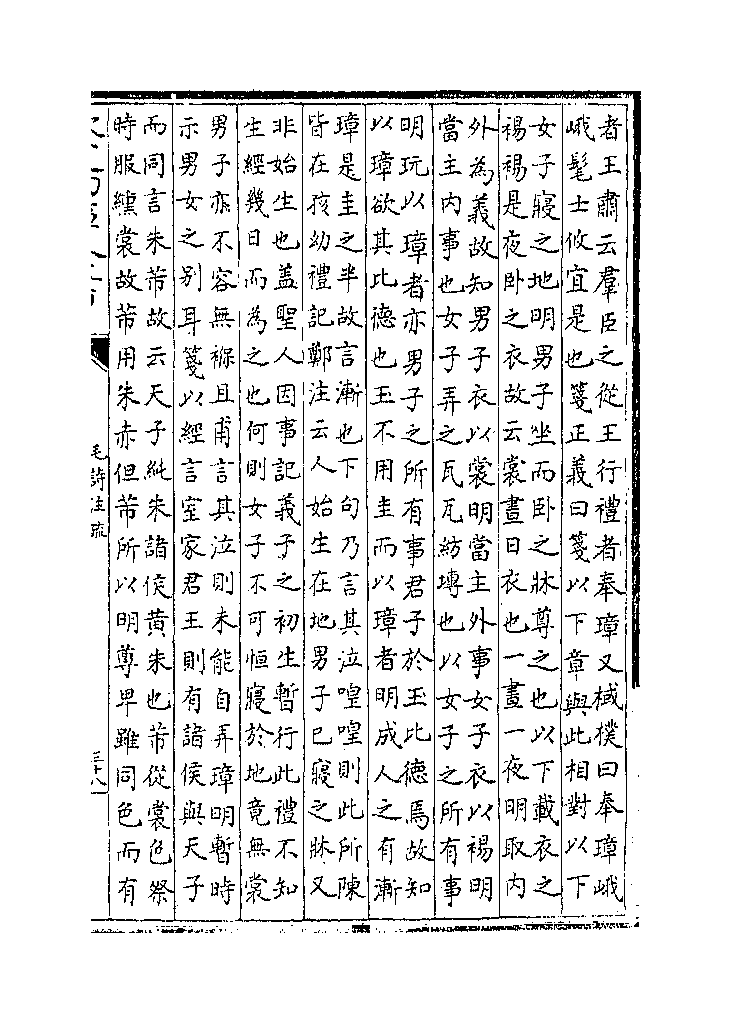 者王肅云羣臣之從王行禮者奉璋又棫樸曰奉璋峨
峨髦士攸宜是也箋正義曰箋以下章與此相對以下
女子寢之地明男子坐而卧之牀尊之也以下載衣之
裼裼是夜卧之衣故云裳晝日衣也一晝一夜明取内
外為義故知男子衣以裳明當主外事女子衣以裼明
當主内事也女子弄之瓦瓦紡塼也以女子之所有事
明玩以璋者亦男子之所有事君子於玉比德焉故知
以璋欲其比德也玉不用圭而以璋者明成人之有漸
璋是圭之半故言漸也下句乃言其泣喤喤則此所陳
皆在孩幼禮記鄭注云人始生在地男子已寢之牀又
非始生也盖聖人因事記義子之初生暫行此禮不知
生經幾日而為之也何則女子不可恒寢於地竟無裳
男子亦不容無褓且甫言其泣則未能自弄璋明暫時
示男女之别耳箋以經言室家君王則有諸侯與天子
而同言朱芾故云天子純朱諸侯黄朱也芾從裳色祭
時服纁裳故芾用朱赤但芾所以明尊卑雖同色而有
毛詩注疏
三十八